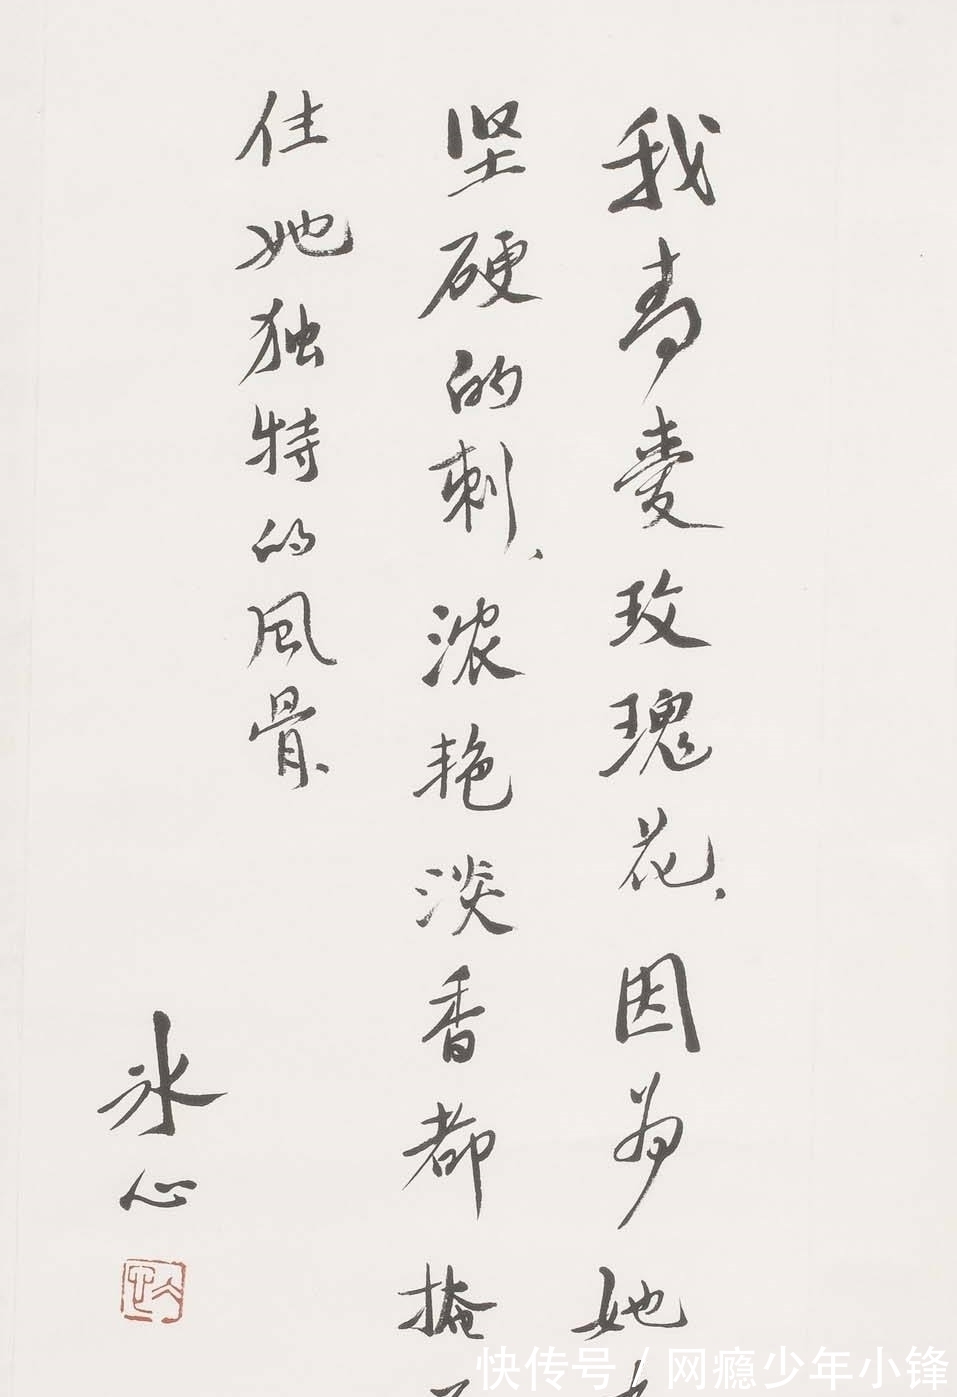 我喜爱玫瑰花，因为她
坚硬的刺，浓艳淡香都掩
住她独特的风骨。
冰心
快传号/网瘾少年小锋